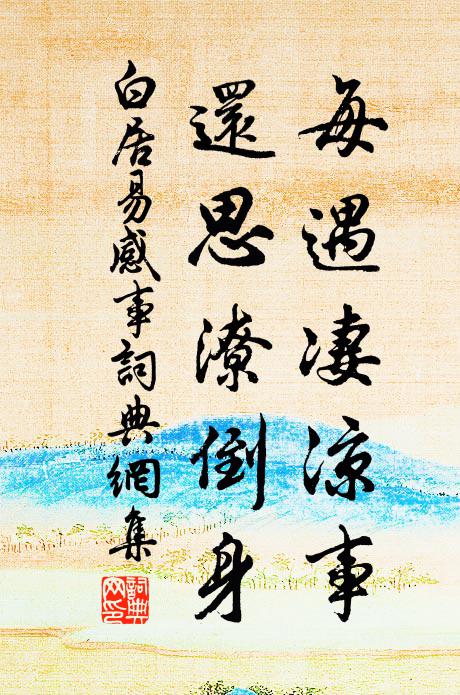 每遇凄涼事
還思潦倒身
白居易感事詞典網集
詞典